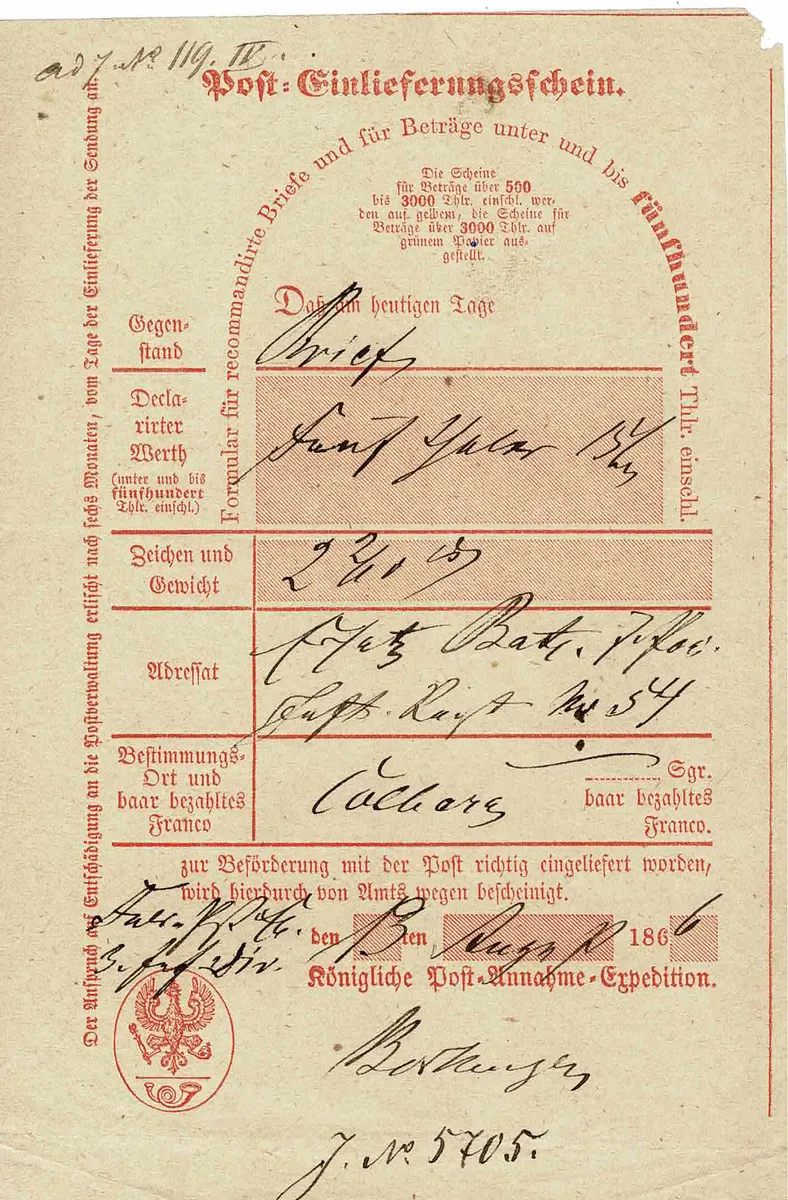 ad J. No. 119. IV.
Post-Einlieferungsschein.
Der Anspruch auf Entschädigung an die Postverwaltung erlischt nach sechs Monaten, vom Tage der Einlieferung der Sendung an.
Formular für recommandirte Briefe und für Beträge unter und bis fünfhundert Thlr. einschl.
Die Scheine
für Beträge über 500
bis 3000 Thlr. einschl. wer-
den auf gelbem, die Scheine für
Beträge über 3000 Thlr. auf
grünem Papier aus-
gestellt.
Daß am heutigen Tage
Gegen-
stand
Brief
Decla-
rirter
Werth
(unter und bis
fünfhundert
Thlr. einschl.)
Fünf Thaler
Zeichen und
Gewicht
2
Adressat
Ersatz Bat. 7. Pom.
Inft. Regt No 54
Bestimmungs-
Ort und
baar bezahltes
Franco
Colberg
Sgr.
baar bezahltes
Franco.
zur Beförderung mit der Post richtig eingeliefert worden,
wird hierdurch von Amts wegen bescheinigt.
den 13ten August 1866
3. Inf. Div.
Königliche Post-Annahme-Expedition.
J. No. 5705.